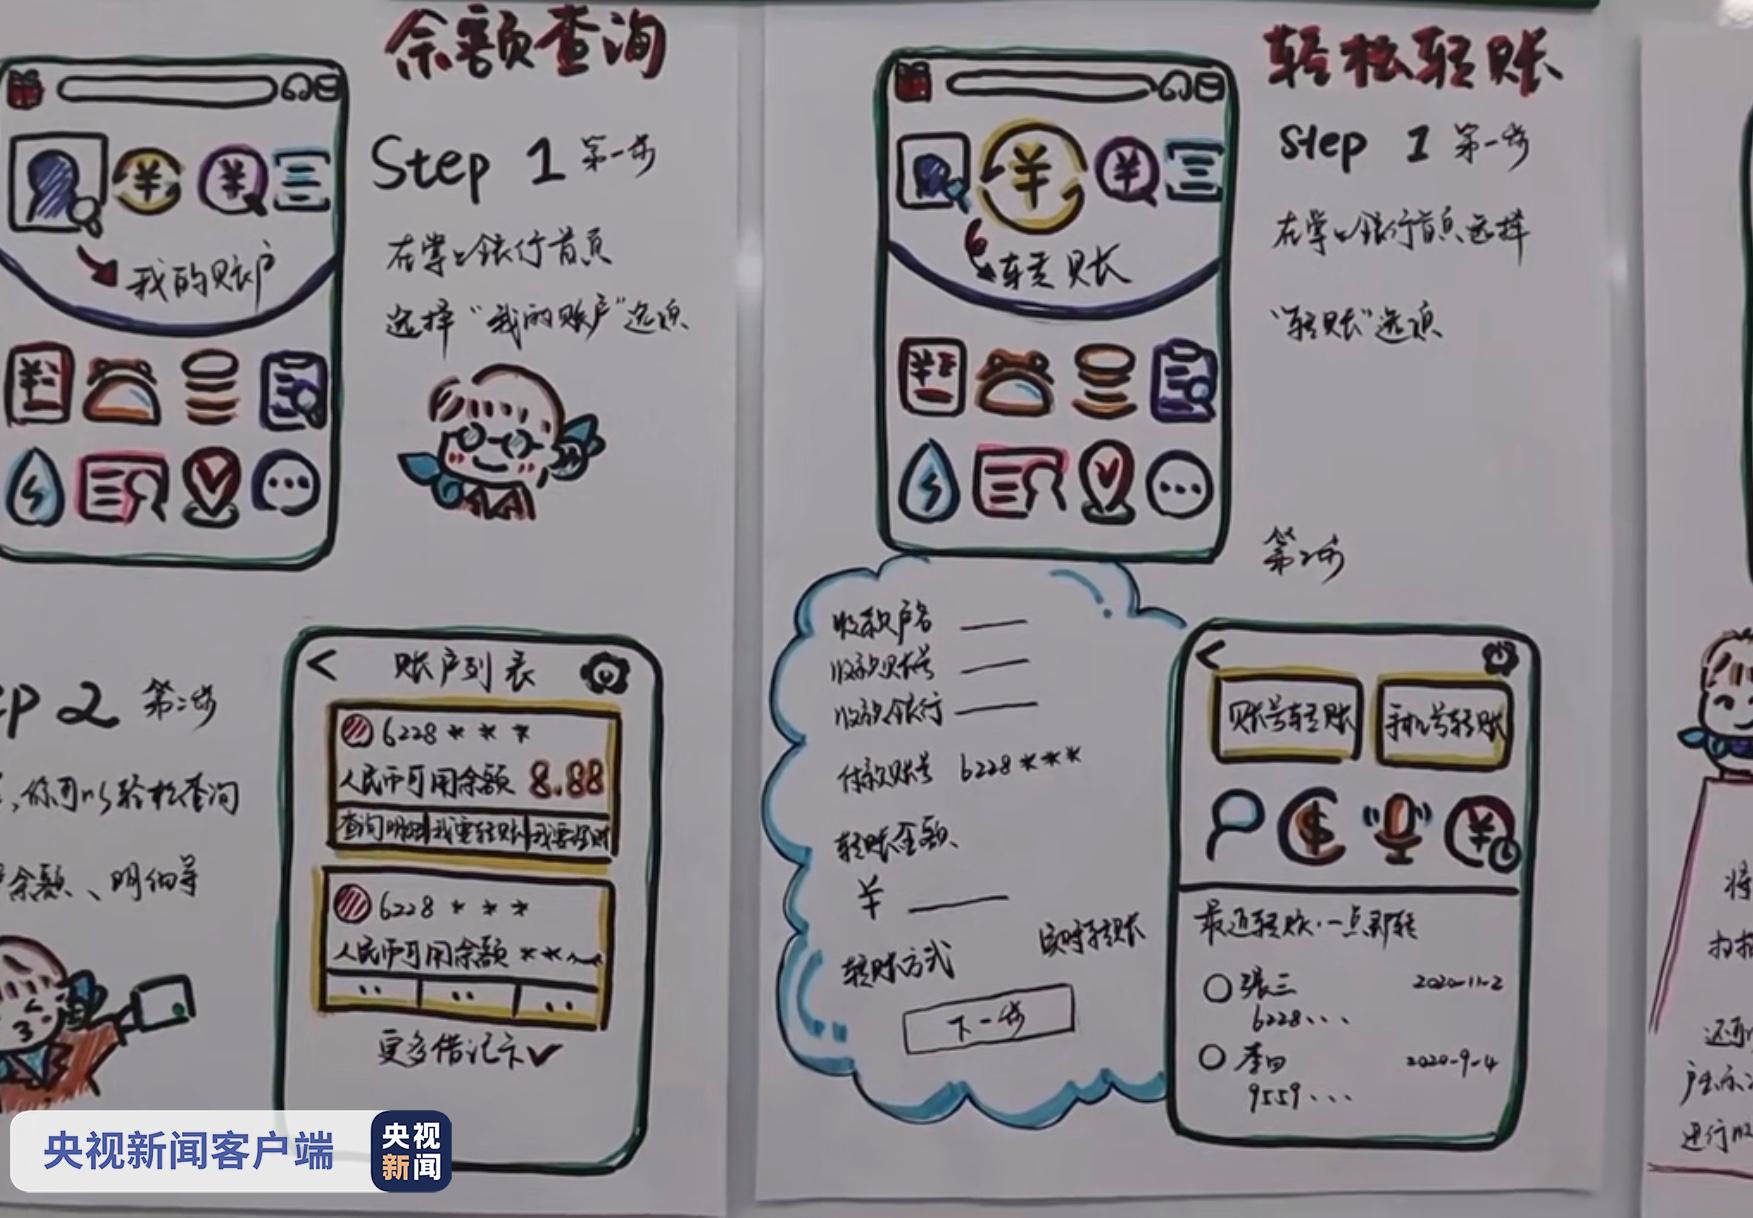 余额查询
Step 1 第一步
在掌上银行首页
选择“我的账户”选项
我的账户
¥
¥
¥
ep 2 第二步
,你可以轻松查询
余额、明细等
账户列表
6228 * * *
人民币可用余额 8.88
查询明细 我要转账 我要理财
6228 * * *
人民币可用余额 **
更多借记卡
轻松转账
Step 1 第一步
在掌上银行首页选择
“转账”选项
¥
¥
转账
¥
第二步
收款户名
收款账号
收款银行
付款账号 6228 ***
转账金额
¥
转账方式 实时转账
下一步
账号转账 手机号转账
$
¥
最近转账·一点即转
张三 2020-11-2
6228...
李四 2020-9-4
9559...
将
扫描
还可
户
进行
央视新闻客户端
央视
新闻